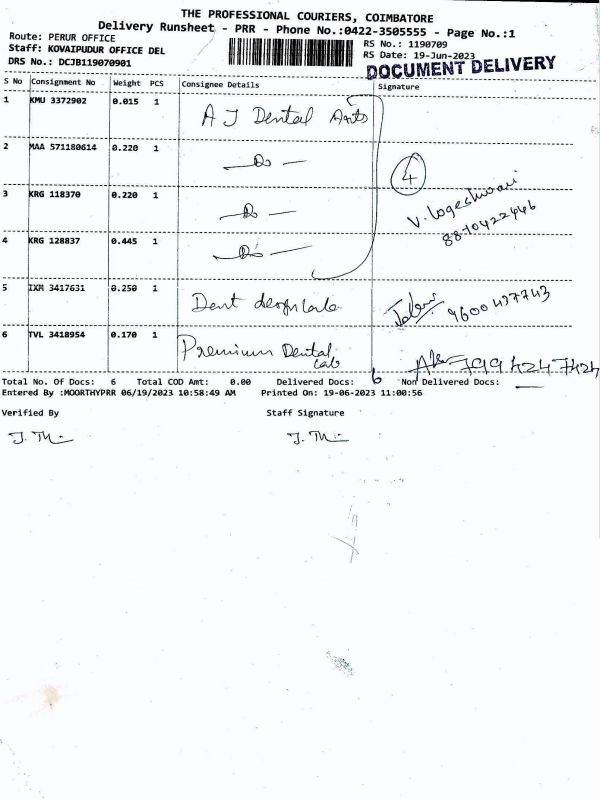 THE PROFESSIONAL COURIERS, COIMBATORE
Delivery Runsheet - PRR - Phone No.:0422-3505555 - Page No.:1
Route: PERUR OFFICE
RS No.: 1190709
Staff: KOVAIPUDUR OFFICE DEL
RS Date: 19-Jun-2023
DRS No.: DCJB119070901
DOCUMENT DELIVERY
S No Consignment No Weight PCS Consignee Details Signature
1 KMU 3372902 0.015 1 A J Dental Arts
2 MAA 571180614 0.220 1 — Do —
4
3 KRG 118370 0.220 1 — Do —
V. Logeshwari
8870422446
4 KRG 128837 0.445 1 — Do —
5 IXM 3417631 0.250 1 Dent
9600437743
6 TVL 3418954 0.170 1 Premium Dental Lab
799 424 7424
Total No. Of Docs: 6 Total COD Amt: 0.00 Delivered Docs: 6 Non Delivered Docs: —
Entered By :MOORTHYPRR 06/19/2023 10:58:49 AM Printed On: 19-06-2023 11:00:56
Verified By Staff Signature